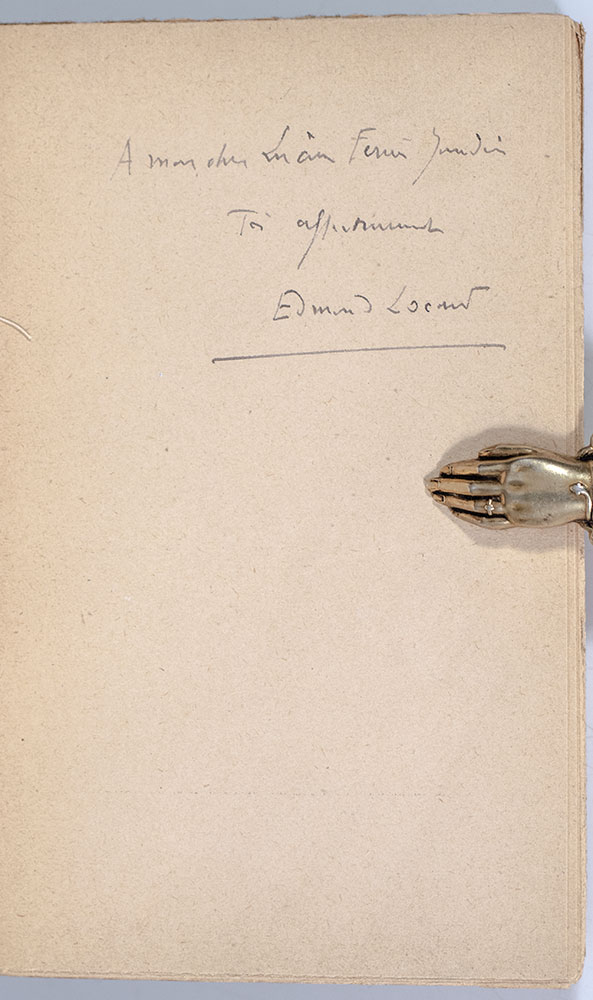 A mon cher Lucien
Très affectueusement
Edmond Locard